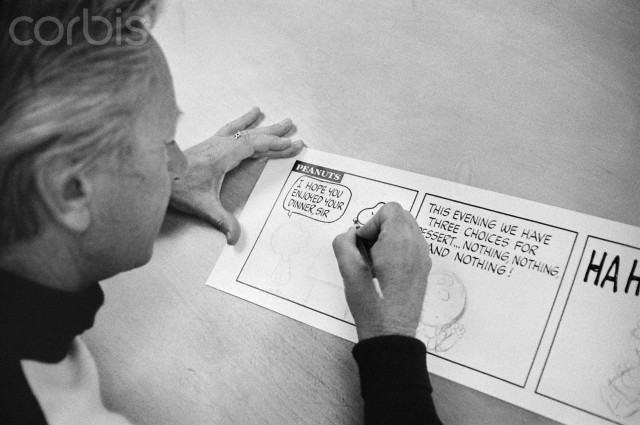 corbis
PEANUTS
I HOPE YOU
ENJOYED YOUR
DINNER, SIR
THIS EVENING WE HAVE
THREE CHOICES FOR
DESSERT... NOTHING, NOTHING
AND NOTHING!
HAH